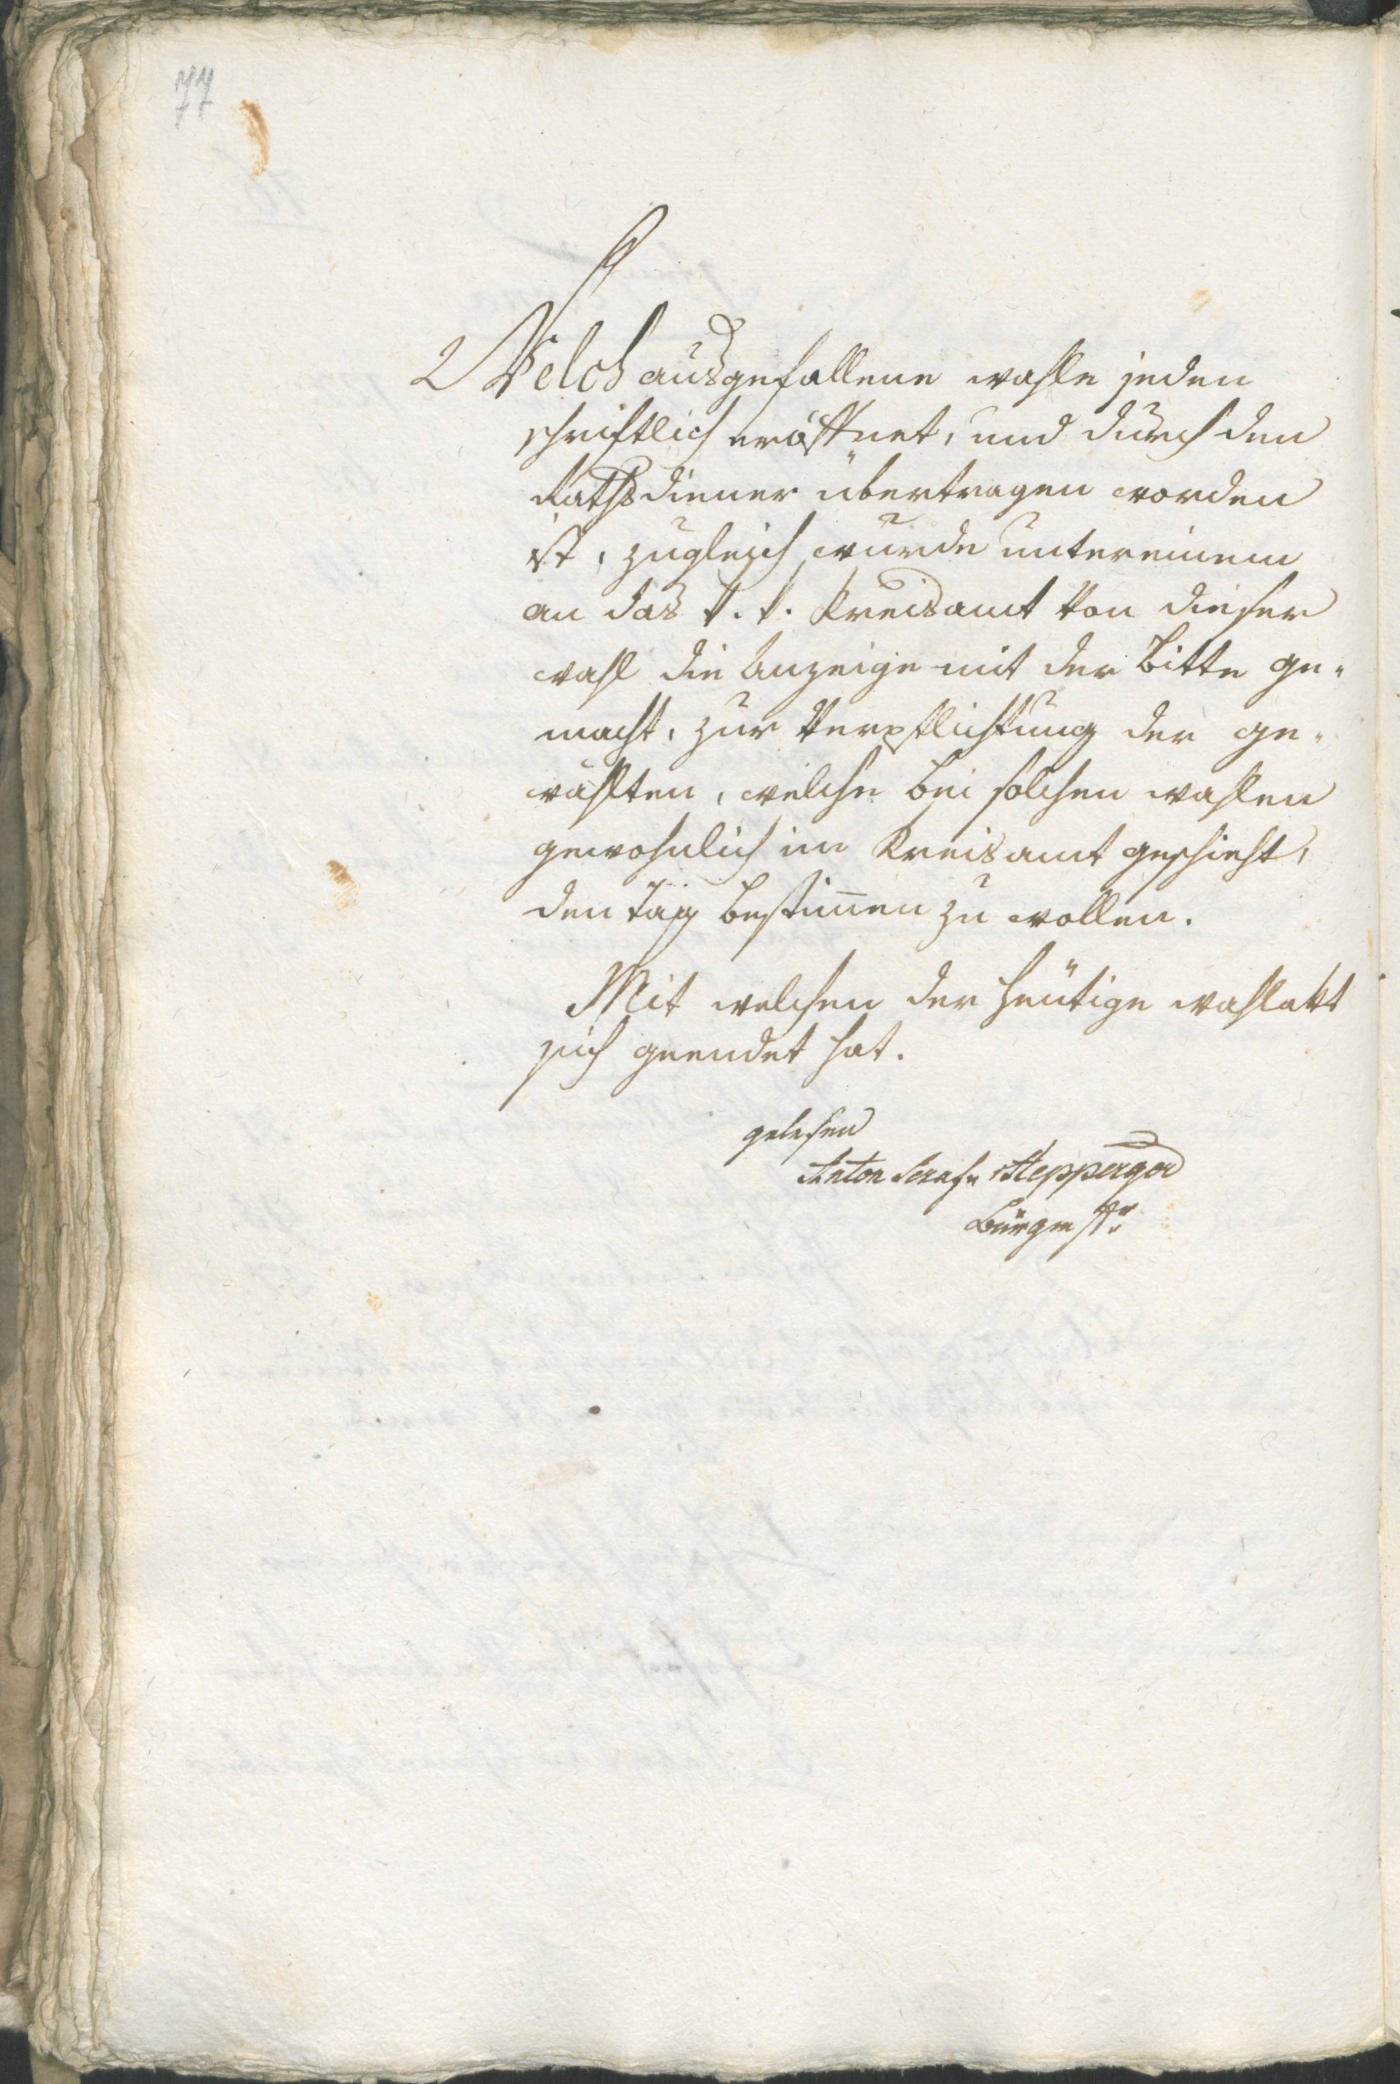 77
Welch ausgefallene wahle jeden
schriftlich eröffnet, und durch den
Rathsdiener übertragen worden
ist, zugleich wurde untereinem
an das k. k. Kreisamt von dieser
wahl die Anzeige mit der Bitte ge-
macht, zur Verpflichtung der ge-
wählten, welche bei solchen wahlen
gewohnlich im Kreisamt geschieht,
den Tag bestim̅en zu wollen.
Mit welchen der heutige wahlakt
sich geendet hat.
gelesen
Anton
Bürgmstr